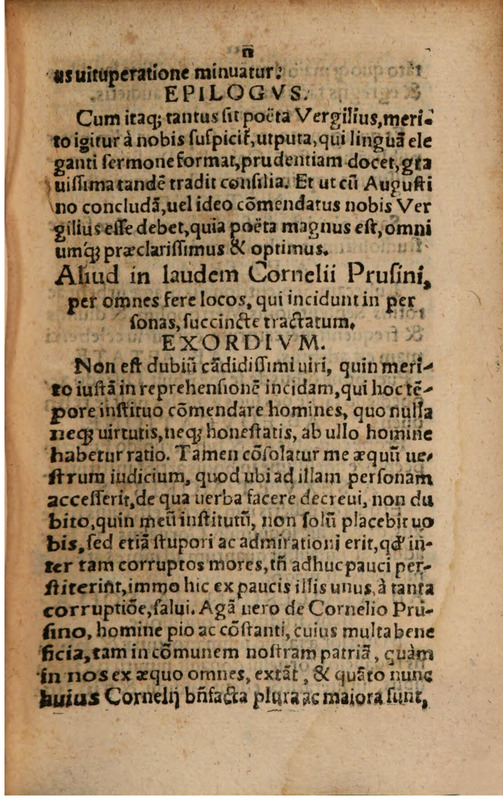 us uituperatione minuatur?
EPILOGVS.
Cum itaq; tantus sit poëta Vergilius, meri-
to igitur à nobis suspicit͛, utputa, qui linguā ele
ganti sermone format, prudentiam docet, gra
uissima tandē tradit consilia. Et ut cū Augusti
no concludā, uel ideo cōmendatus nobis Ver
gilius esse debet, quia poëta magnus est, omni
umq; præclarissimus & optimus.
Aliud in laudem Cornelii Prusini,
per omnes fere locos, qui incidunt in per
sonas, succincte tractatum.
EXORDIVM.
Non est dubiū cādidissimi uiri, quin meri-
to iustā in reprehensionē incidam, qui hoc tē-
pore instituo cōmendare homines, quo nulla
neq; uirtutis, neq; honestatis, ab ullo homine
habetur ratio. Tamen cōsolatur me æquū ue-
strum iudicium, quod ubi ad illam personam
accesserit, de qua uerba facere decreui, non du
bito, quin meū institutū, non solū placebit uo
bis, sed etiā stupori ac admirationi erit, qd' in-
ter tam corruptos mores, tn̄ adhuc pauci per-
stiterint, immo hic ex paucis illis unus, à tanta
corruptiōe, salui. Agā uero de Cornelio Pru-
sino, homine pio ac cōstanti, cuius multa bene
ficia, tam in cōmunem nostram patriā, quàm
in nos ex æquo omnes, extāt, & quāto nunc
huius Cornelij bn̄facta plura ac maiora sunt,